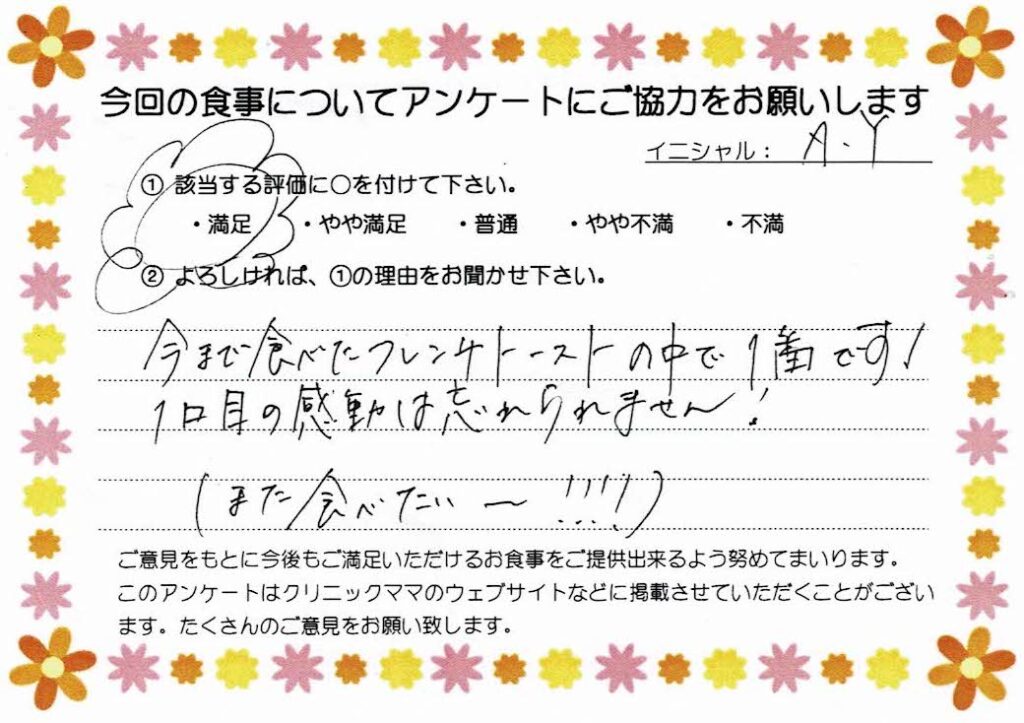 今回の食事についてアンケートにご協力をお願いします
イニシャル： A.Y
① 該当する評価に○を付けて下さい。
・満足 ・やや満足 ・普通 ・やや不満 ・不満
② よろしければ、①の理由をお聞かせ下さい。
今まで食べたフレンチトーストの中で1番です!
1口目の感動は忘れられません!
(また食べたい～!!!!)
ご意見をもとに今後もご満足いただけるお食事をご提供出来るよう努めてまいります。
このアンケートはクリニックママのウェブサイトなどに掲載させていただくことがござい
ます。たくさんのご意見をお願い致します。